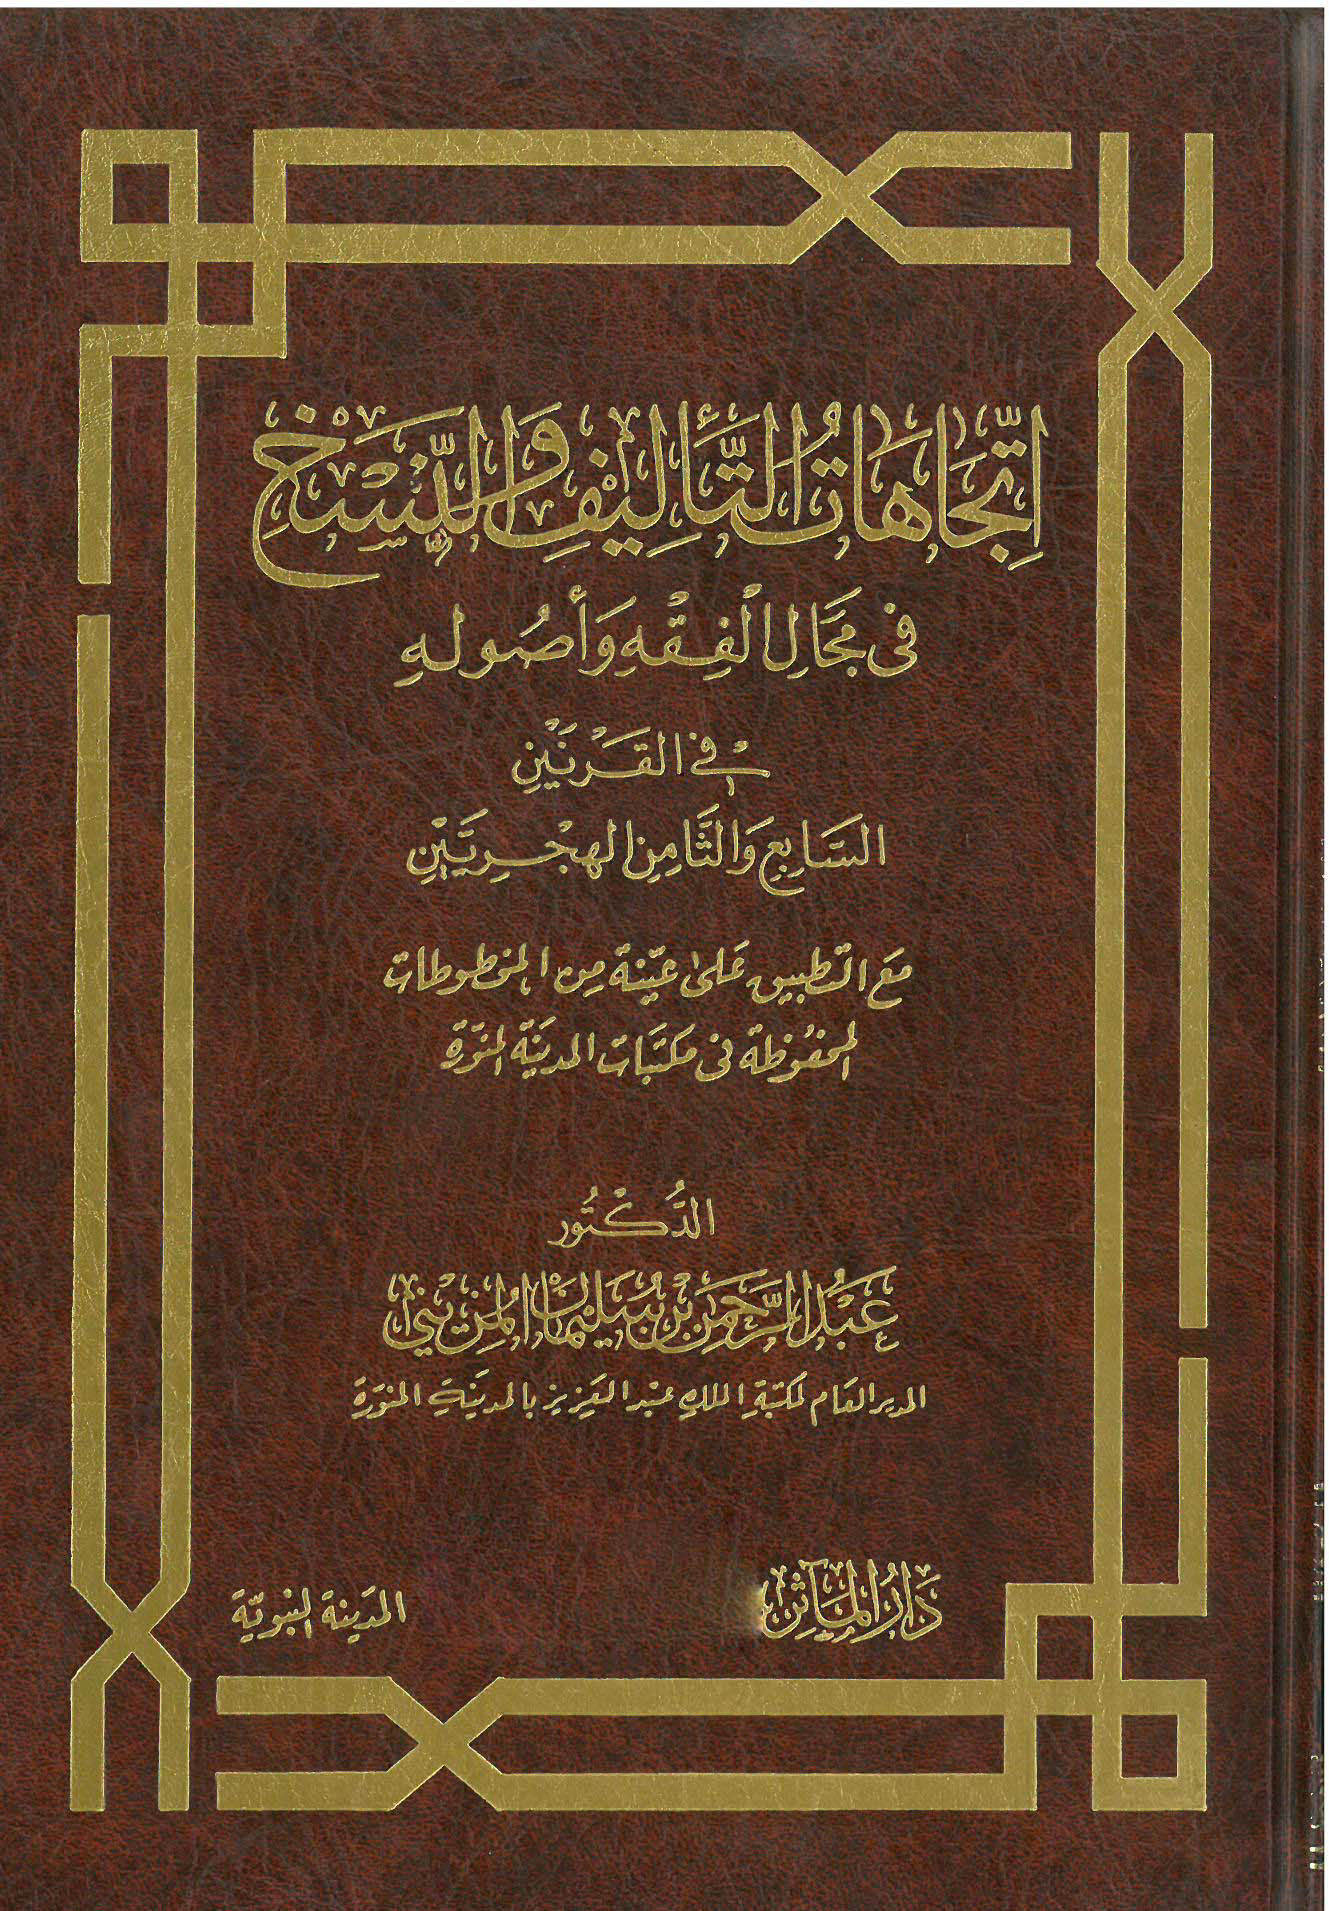 اتِّجَاهَاتُ التَّأْلِيفِ وَالنَّسْخِ
في مَجَالِ الْفِقْهِ وَأُصُولِهِ
في القَرْنَيْنِ
السَّابِعِ وَالثَّامِنِ الهِجْرِيَّيْنِ
مَعَ التطبيق عَلى عيّنة مِن المخطوطات
المحفُوظة في مكتبَات المدينَة المنوّرة
الدُّكْتُور
عَبْدُ الرَّحْمٰنِ بْنُ سُلَيْمَانَ المُزَيْنِي
المدير العَام لمكتبَة الملك عبْد العَزيز بالمدينَة المنوّرة
دَارُ المَآثِر
المدَينة النبويّة